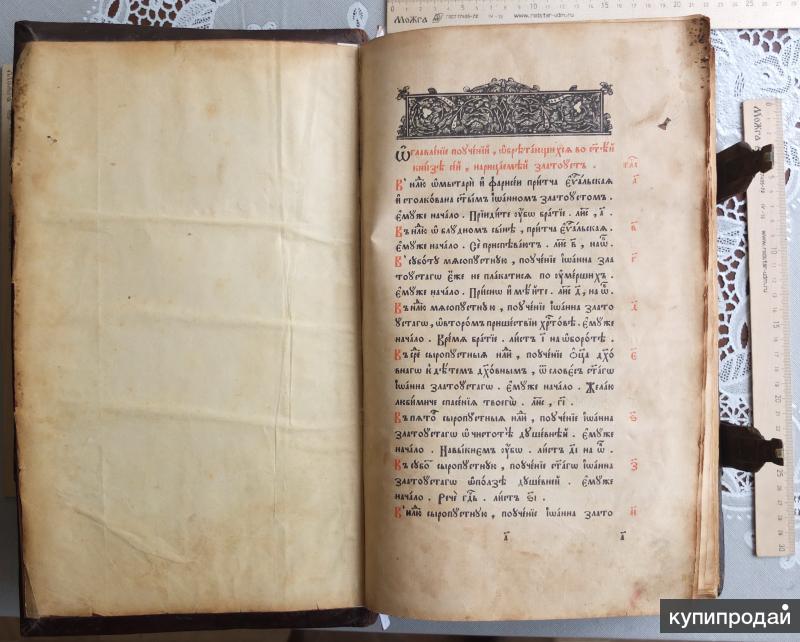 Можга гост17435-72 www.rodstar-udm.ru
Ѡглавле́нїе поꙋче́нїй, ѡ҆брѣта́ющихсѧ во ст҃ѣ́й
кни́зѣ се́й, нарица́емѣй златоꙋ́стъ. гла
В' нлю ѡ҆мытарѝ и҆ фарисе́и при́тча є҆ѵⷢ҇альская а҃
и҆ столкова́на ст҃ы́мъ і҆ѡа́нномъ златоꙋ́стомъ.
є҆мꙋ́же нача́ло. Прїиди́те ᲂу҆́бѡ бра́тїе. ли́с, а҃.
Въ нлю ѡ҆ блꙋ́дномъ сы́нѣ, при́тча є҆ѵⷢ҇альская. в҃
є҆мꙋ́же нача́ло. Се́ приспѣва́етъ. ли́с в҃, на ѡ҆б.
В' сꙋббо́тꙋ мѧсопꙋ́стнꙋю, поꙋче́нїе і҆ѡа́нна зла г҃
тоꙋ́стагѡ є҆́же не пла́катисѧ по ᲂу҆ме́ршихъ.
є҆мꙋ́же нача́ло. При́снѡ и҆мѣ́йте. ли́с д҃, на ѡ҆б.
Въ нлю мѧсопꙋ́стнꙋю, поꙋче́нїе і҆ѡа́нна злато д҃
ꙋ́стагѡ, ѡ҆второ́мъ прише́ствїи хрⷭ҇то́вѣ. є҆мꙋ́же
нача́ло. Вре́мѧ бра́тїе. ли́стъ і҃ на ѡ҆боро́тѣ.
Въ сре́ сыропꙋ́стныѧ нли, поꙋче́нїе ѻ҆ц҃а̀ дꙋхо́ е҃
внагѡ к дѣ́темъ дꙋхо́внымъ, ѿ слове́съ ст҃а́гѡ
і҆ѡа́нна златоꙋ́стагѡ. є҆мꙋ́же нача́ло. Жела́ю
люби́миче спасе́нїѧ твоегѡ̀. ли́с, г҃і.
Въ пѧто́ сыропꙋ́стныѧ нли, поꙋче́нїе і҆ѡа́нна ѕ҃
златоꙋ́стагѡ ѡ҆ чистотѣ̀ дꙋше́внѣй. є҆мꙋ́же
нача́ло. Навы́кнемъ ᲂу҆́бѡ. ли́стъ д҃і на ѡ҆б.
Въ сꙋббо́ сыропꙋ́стнꙋю, поꙋче́нїе ст҃а́гѡ і҆ѡа́нна з҃
златоꙋ́стагѡ ѡ҆по́лзѣ дꙋше́внѣй. є҆мꙋ́же
нача́ло. Речѐ гдⷭ҇ь. ли́стъ ѕ҃і.
В' нлю сыропꙋ́стнꙋю, поꙋче́нїе і҆ѡа́нна злато и҃
а҃ а҃
Можга
www.rodstar-udm.ru
купипродай